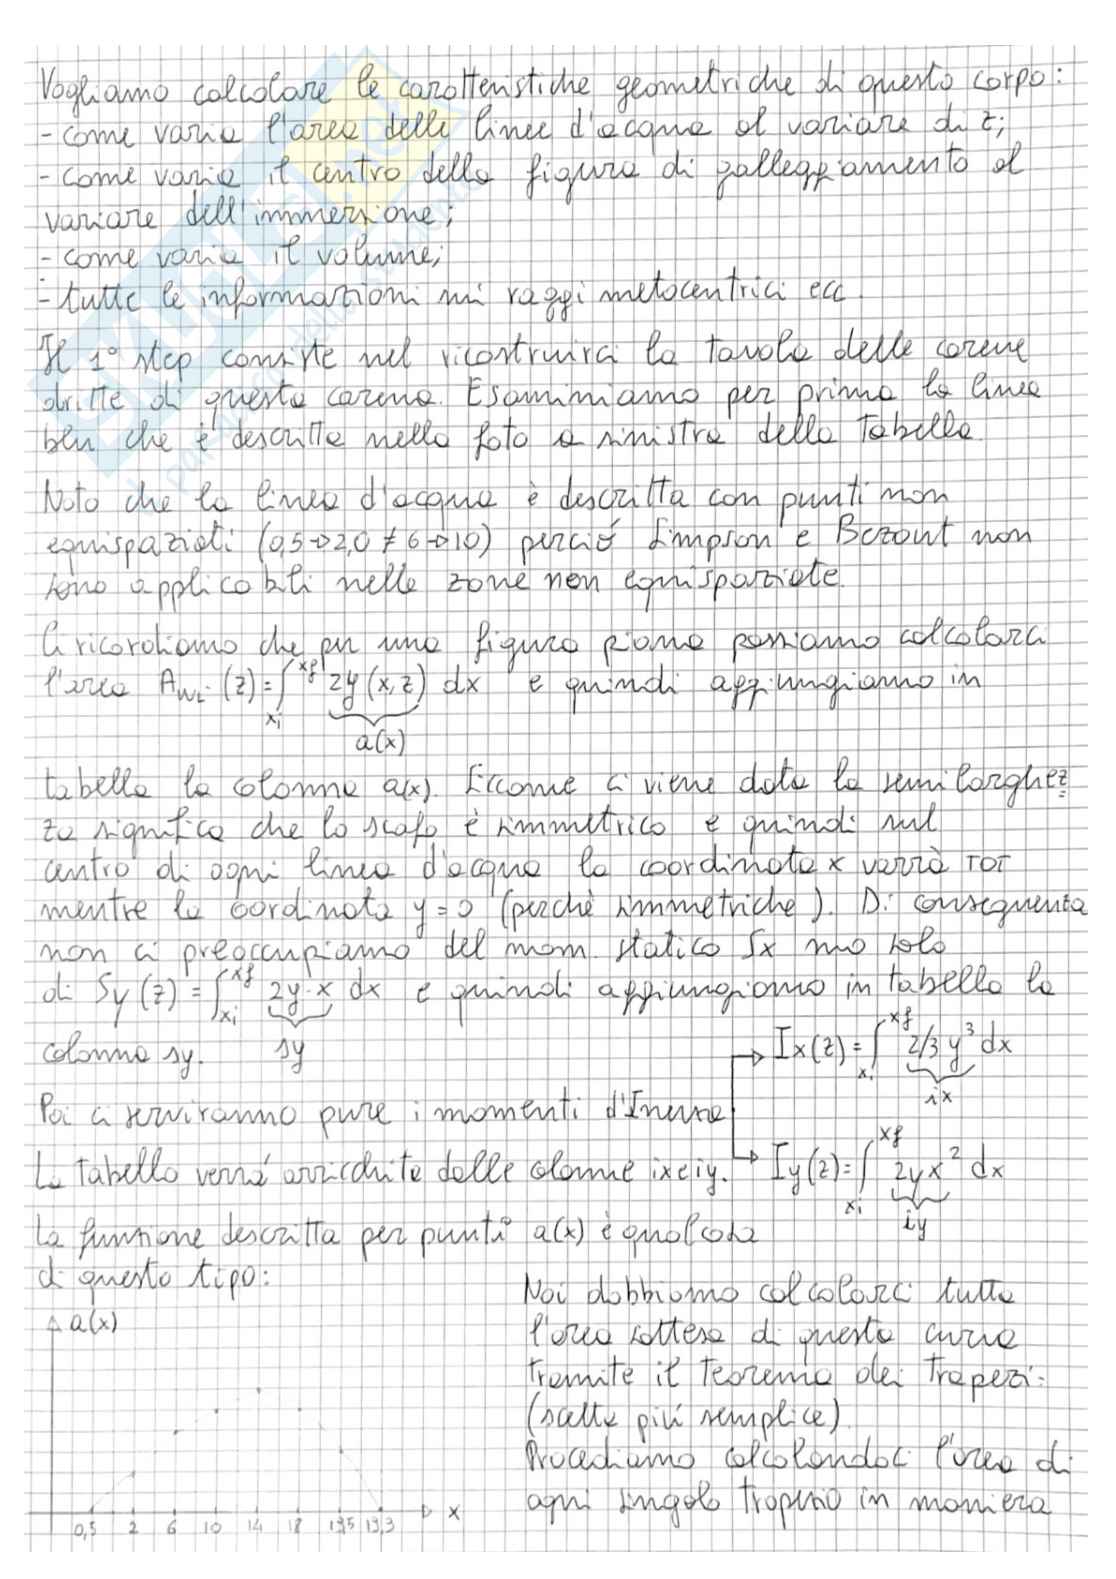 Vogliamo calcolare le caratteristiche geometriche di questo corpo:
- come varia l'area delle linee d'acqua al variare di z;
- come varia il centro della figura di galleggiamento al
variare dell'immersione;
- come varia il volume;
- tutte le informazioni sui raggi metacentrici ecc.
Il 1° step consiste nel ricostruirci la tavola delle carene
dritte di questa carena. Esaminiamo per prima la linea
blu che è descritta nella foto a sinistra della tabella.
Noto che la linea d'acqua è descritta con punti non
equispaziati (0,5→2,0 ≠ 6→10) perciò Simpson e Bezout non
sono applicabili nelle zone non equispaziate.
Ci ricordiamo che per una figura piana possiamo calcolarci
l'area A_WL (z) = ∫_xi^xf 2y(x,z) dx e quindi aggiungiamo in
a(x)
tabella la colonna a(x). Siccome ci viene data la semilarghez
za significa che lo scafo è simmetrico e quindi sul
centro di ogni linea d'acqua la coordinata x varrà TOT
mentre la coordinata y=0 (perchè simmetriche). Di conseguenza
non ci preoccupiamo del mom. statico Sx ma solo
di Sy(z) = ∫_xi^xf 2y·x dx e quindi aggiungiamo in tabella la
colonna sy. sy
Ix(z) = ∫_xi^xf 2/3 y³ dx
ix
Poi ci serviranno pure i momenti d'Inerzia
La tabella verrà arricchita delle colonne ix e iy. Iy(z) = ∫_xi^xf 2yx² dx
iy
La funzione descritta per punti a(x) è qualcosa
di questo tipo:
a(x)
0,5 2 6 10 14 18 19,5 19,3 x
Noi dobbiamo calcolarci tutta
l'area sottesa di questa curva
tramite il teorema dei trapezi:
(scelta più semplice).
Procediamo calcolandoci l'area di
ogni singolo trapezio in maniera